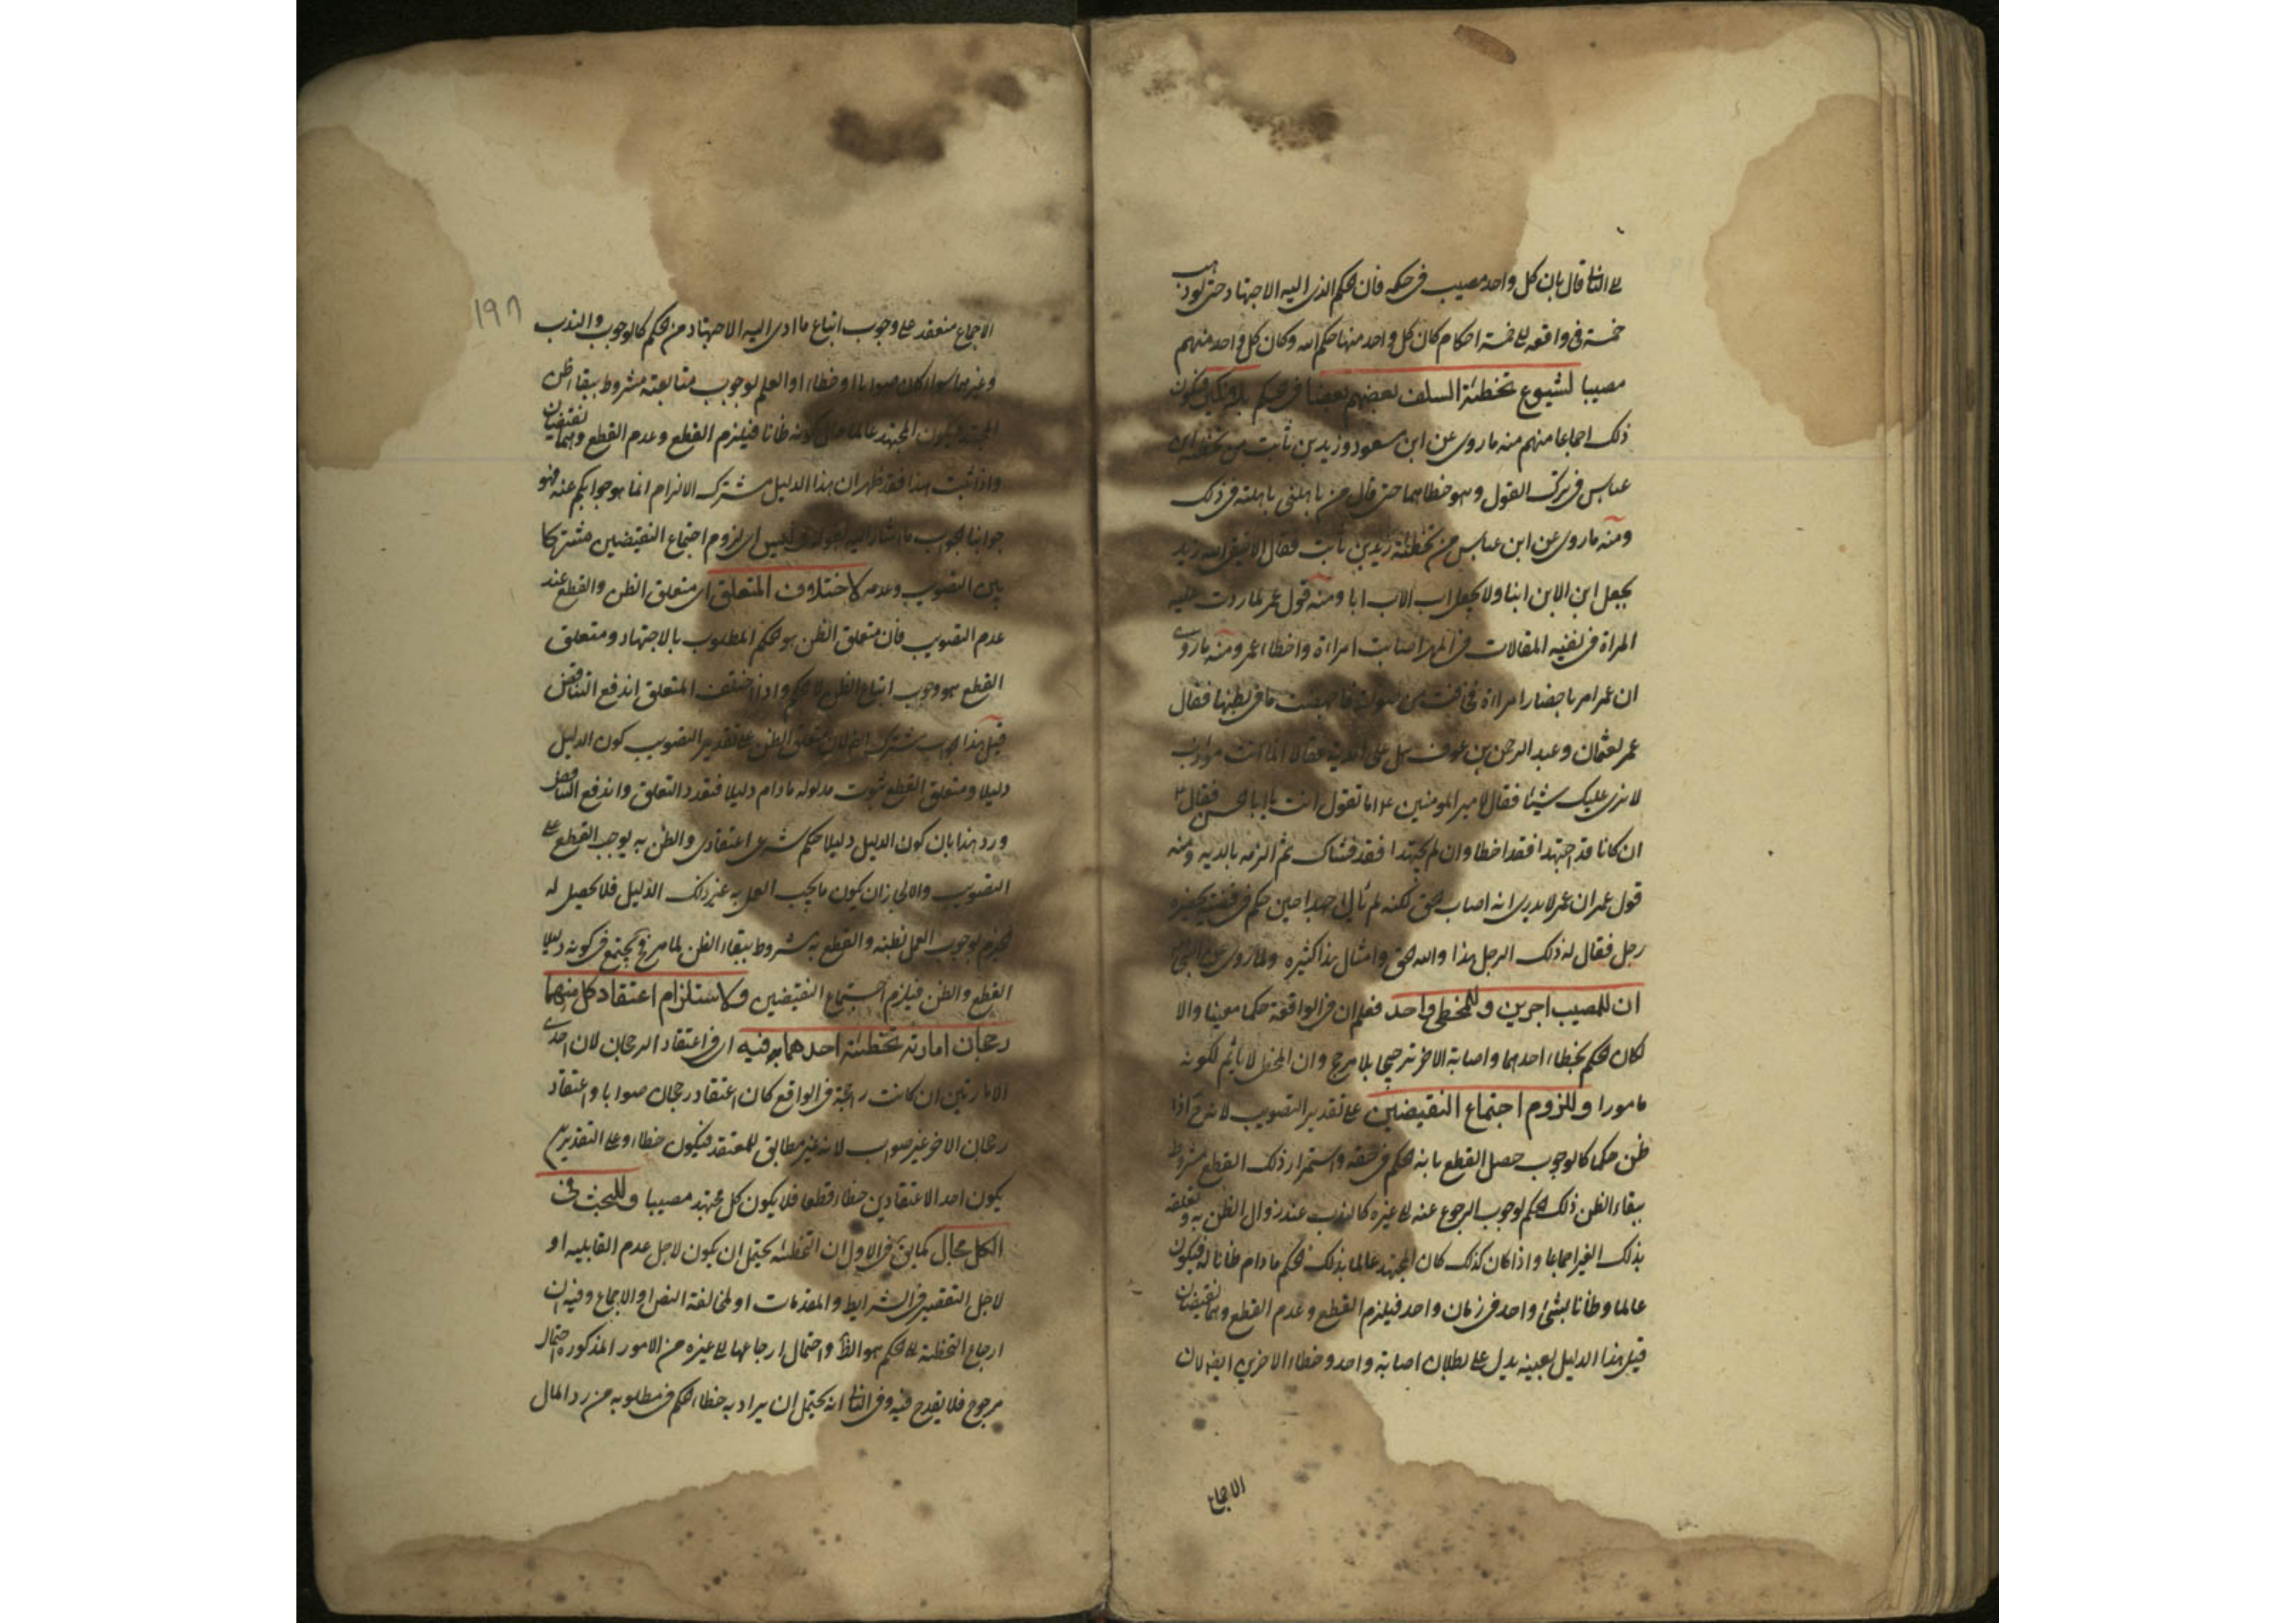 على الثانى قال بان كل واحد مصيب فى حكمه فان الحكم الذى اليه الاجتهاد حتى لو ذهب
خمسة فى واقعه الى خمسة احكام كان كل واحد منها حكم الله وكان كل واحد منهم
مصيبا لشيوع تخطئة السلف بعضهم بعضا فى الحكم بلا نكير فيكون
ذلك اجماعا منهم منه ما روى عن ابن مسعود وزيد بن ثابت من تخطئة ابن
عباس فى ترك العول وهو خطاهما حتى قال من باهلنى باهلته فى ذلك
ومنه ما روى عن ابن عباس من تخطئة زيد بن ثابت فقال الا يتق الله زيد
يجعل ابن الابن ابنا ولا يجعل اب الاب ابا ومنه قول عمر لما ردت عليه
المراة فى نفيه المغالات فى المهر اصابت امراة واخطا عمر ومنه ما روى
ان عمر امر باحضار امراة فخافت من صولته فاجهضت ما فى بطنها فقال
عمر لعثمان وعبد الرحمن بن عوف هل على الدية فقالا انما انت مؤدب
لا نرى عليك شيئا فقال لامير المومنين ع اما تقول انت يا ابا الحسن فقال ع
ان كانا قد اجتهدا فقد اخطا وان لم يجتهدا فقد غشاك ثم الزمه بالدية ومنه
قول عمر ان عمر لا يدرى انه اصاب الحق لكنه لم يال جهدا حين حكم فى قضية بحضرة
رجل فقال له ذلك الرجل هذا والله الحق وامثال هذا كثيرة ولما روى عن النبى
ان للمصيب اجرين وللمخطى واحد فعلم ان فى الواقعة حكما معينا والا
لكان الحكم بخطاء احدهما واصابة الاخر ترجيحا بلا مرجح وان المخطى لا ياثم لكونه
مامورا وللزوم اجتماع النقيضين على تقدير التصويب لانه ح اذا
ظن حكما كالوجوب حصل القطع بانه الحكم فى حقه واستمرار ذلك القطع مشروط
ببقاء الظن ذلك الحكم لوجوب الرجوع عنه الى غيره كالندب عند زوال الظن به وتعلقه
بذلك الغير اجماعا واذا كان كذلك كان المجتهد عالما بذلك الحكم ما دام ظانا له فيكون
عالما وظانا بشئ واحد فى زمان واحد فيلزم القطع وعدم القطع وهما نقيضان
قيل هذا الدليل بعينه يدل على بطلان اصابة واحد وخطاء الاخرين ايضا لان
الاجماع
١٩٨
الاجماع منعقد على وجوب اتباع ما ادى اليه الاجتهاد من الحكم كالوجوب والندب
وغيرهما سواء كان صوابا او خطاء والعلم لوجوب متابعته مشروط ببقاء ظن
المجتهد فيكون المجتهد عالما حال كونه ظانا فيلزم القطع وعدم القطع وهما نقيضان
واذا ثبت هذا فقد ظهر ان هذا الدليل مشترك الالزام انما هو جوابكم عنه فهو
جوابنا الجواب ما اشار اليه بقوله وليس اى لزوم اجتماع النقيضين مشتركا
بين التصويب وعدمه لاختلاف المتعلق اى متعلق الظن والقطع عند
عدم التصويب فان متعلق الظن هو الحكم المطلوب بالاجتهاد ومتعلق
القطع هو وجوب اتباع الظن لا الحكم واذا اختلف المتعلق اندفع التناقض
قيل هذا الجواب مشترك ايضا لان متعلق الظن على تقدير التصويب كون الدليل
دليلا ومتعلق القطع ثبوت مدلوله ما دام دليلا فتعدد التعلق واندفع التناقض
ورد هذا بان كون الدليل دليلا حكم شرعى اعتقادى والظن به يوجب القطع على
التصويب والا لجاز ان يكون ما يجب العمل به غير ذلك الدليل فلا يحصل له
الجزم بوجوب العمل بظنه والقطع به مشروط ببقاء الظن لما مر فيجتمع فى كونه دليلا
القطع والظن فيلزم اجتماع النقيضين ولاستلزام اعتقاد كل منهما
رجحان امارته تخطئة احدهما فيه اى فى اعتقاد الرجحان لان احدى
الامارتين ان كانت راجحة فى الواقع كان اعتقاد رجحان صوابا واعتقاد
رجحان الاخر غير صواب لانه غير مطابق للمعتقد فيكون خطاء وعلى التقديرين
يكون احد الاعتقادين خطاء قطعا فلا يكون كل مجتهد مصيبا وللبحث فى
الكل مجال كما يق فى الاول ان التخطئة يحتمل ان يكون لاجل عدم القابلية او
لاجل التقصير فى الشرايط والمقدمات او لمخالفة النص او الاجماع وفيه ان
ارجاع التخطئة الى الحكم هو الظ واحتمال ارجاعها الى غيره من الامور المذكورة احتمال
مرجوح فلا يقدح فيه وفى الثانى انه يحتمل ان يراد به خطاء الحكم فى مطلوبه من رد المال